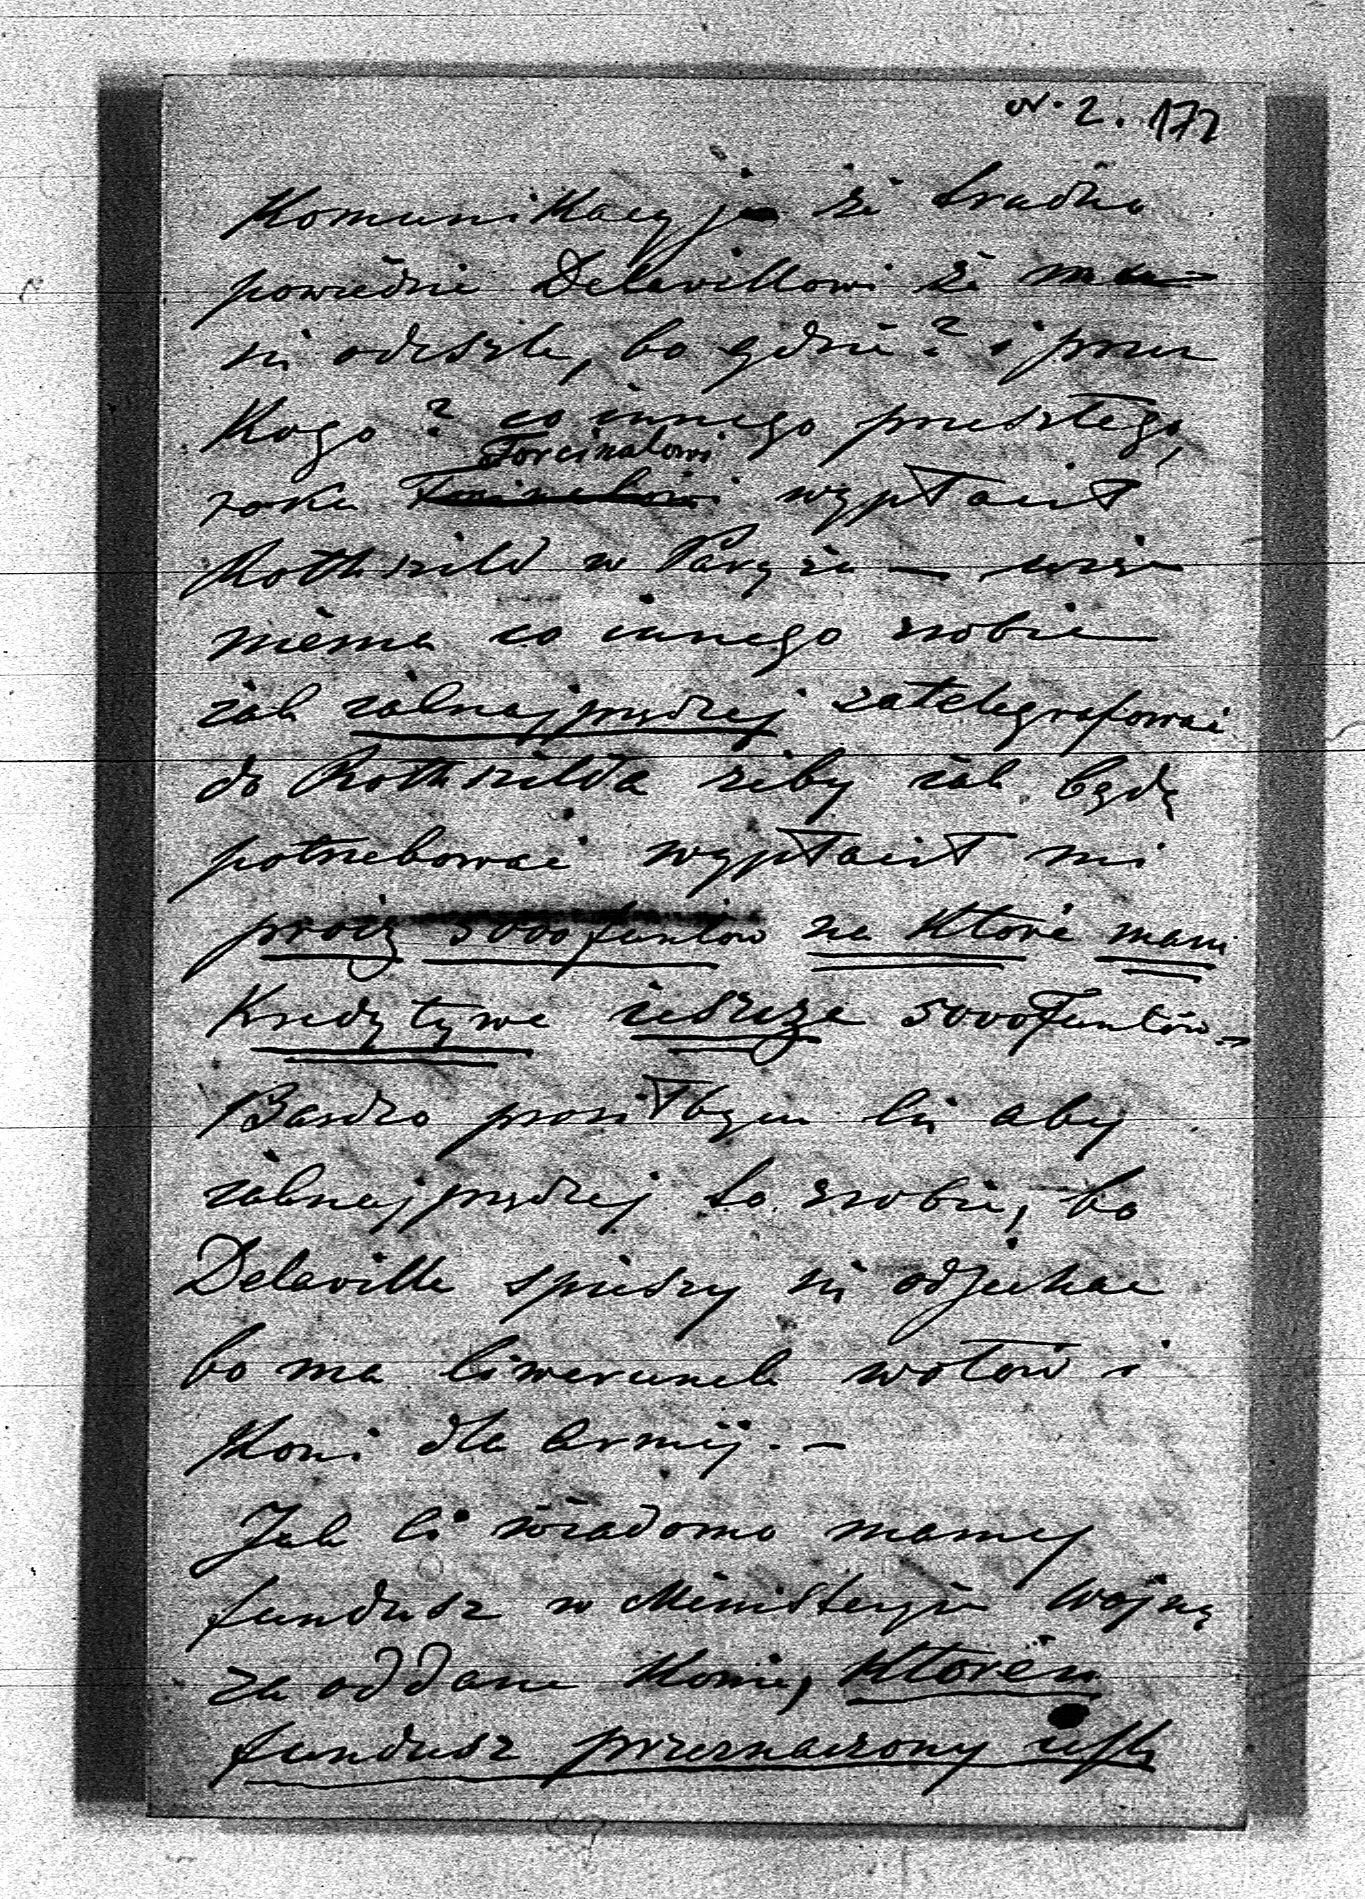 N. 2. 172
Komunikacyje że trudno
powiedzić Delavillowi że mu
si odeszle, bo gdzie? i przez
Kogo? co innego przeszłego,
Forcinalowi
roku wypłacił
Rothszild w Paryżu — więc
niéma co innego zrobić
iak iaknajprędzej zatelegrafować
do Rothszilda żeby iak będę
potrzebować wypłacił mi
prócz 5000 funtów na które mam
Kredytywe ieszcze 5000 funtów —
Bardzo prosiłbym Cię aby
iaknajprędzej to zrobić, bo
Delaville spieszy się odjechac
bo ma liwerunek wołow i
Koni dla armij. —
Jak Ci wiadomo mamy
fundusz w Ministeryie Wojny
za oddane Konie, któren
fundusz przeznaczony iest